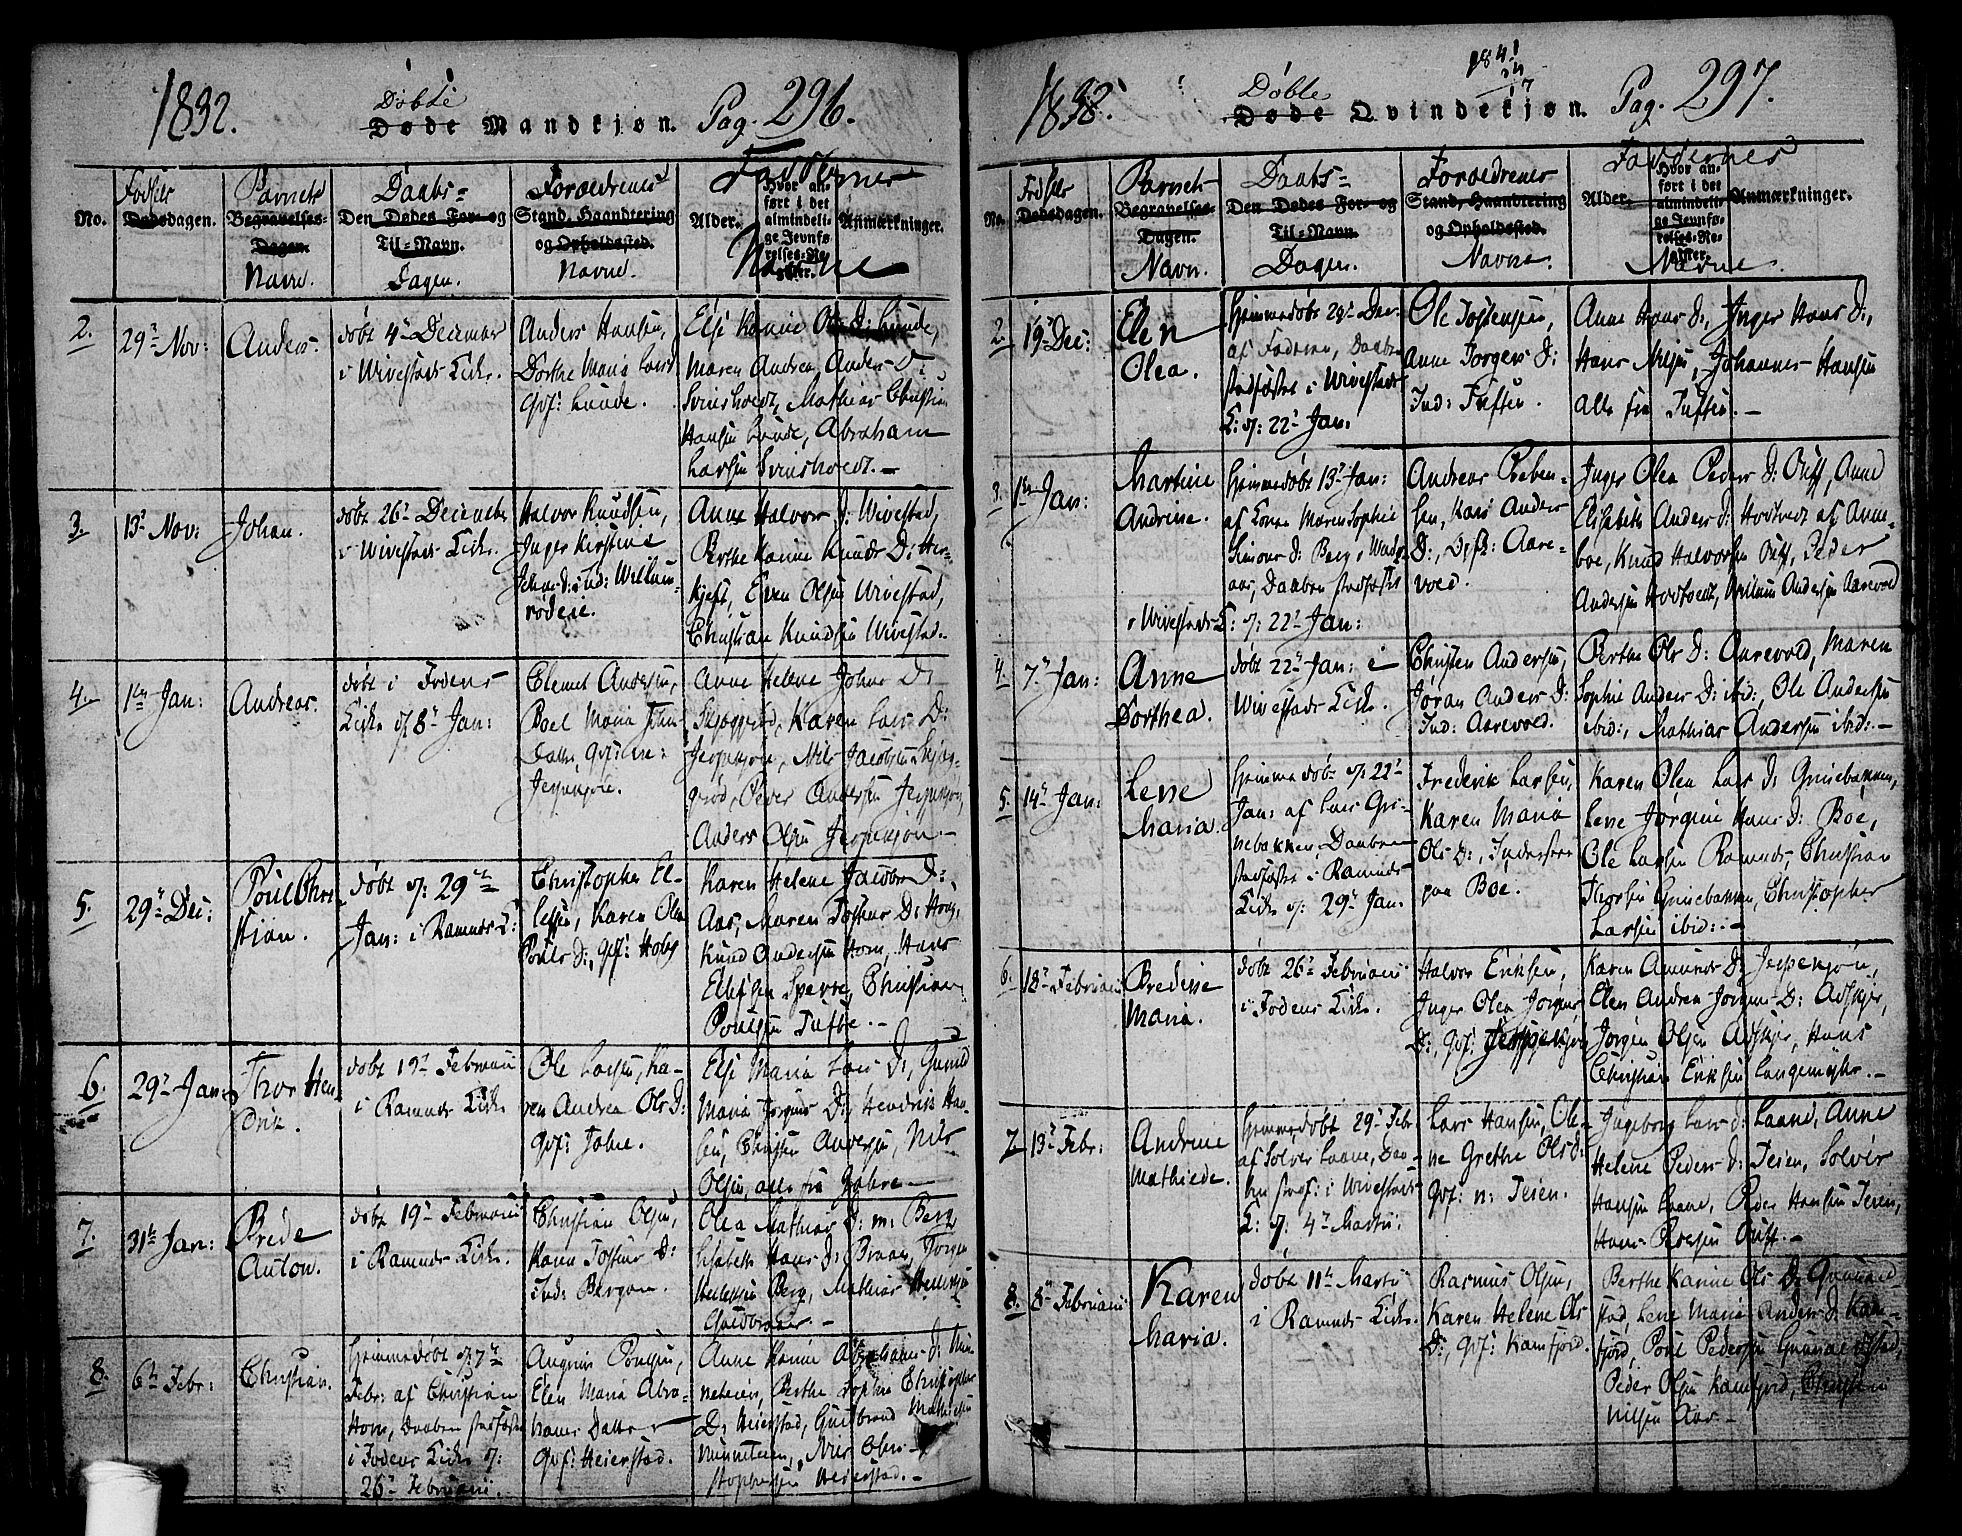 1832.
Döbte
Døde Mandkjøn. Pag. 296.
Fadderne
Fødsels
Barnets
Daabs=
Foroedrenes
No.
Dødsdagen.
Begravelses-
Dagen.
Navn.
Den Dødes For- og
Til-Navn.
Dagen.
Stand, Haandtering
og Opholdssted.
Navne.
Alder.
Hvor an-
ført i det
almindeli-
ge Jevnfø-
relses-Re-
gister.
Navne
Anmærkninger.
2.
29de Nov:
Anders.
døbt 4de December
i Wivestads Kirke.
Anders Hansen,
Dorthe Maria Lars D
Gdf: Lunde.
Else Karine Ols D: Lunde,
Maren Andrea Anders D:
Svinsholdt, Mathias Christian
Hansen Lunde, Abraham
Larsen Svinsholdt. –
3.
13de Nov:
Johan.
døbt 26de December
i Wivestads Kirke.
Halvor Knudsen,
Inger Kirstine
Johns D: Ind: Willums-
rødene.
Anne Halvors D: Wivestad,
Berthe Karine Knuds D: Her-
kjess, Even Olsen Wivestad,
Christian Knudsen Wivestad.
4.
1ste Jan:
Andreas.
døbt i Fodens
Kirke d: 8de Jan:
Clemet Andersen,
Boel Maria John-
Datter, Gdf:
Jespersjøn.
Anne Helene Johns D:
Skjeggrød, Karen Lars D:
Jespersjøn, Niels Jacobsen Skjeg-
grød, Peder Andersen Jespersjøn,
Anders Olsen Jespersjøn. –
5.
29de Dec:
Poul Chri-
stian.
døbt d: 29de
Jan: i Ramnes K:
Christopher El-
lefsen, Karen Olea
Pouls D:, Gdf: Holt
Karen Helene Jacobs D:
Aas, Maren Tostens D: Horn,
Knud Andersen Horn, Hans
Ellefsen Sperre, Christian
Poulsen Tufte. –
6.
29de Jan:
Thor Hen-
drik.
døbt 19de Februarii
i Ramnes Kirke
Ole Larsen, Ka-
ren Andrea Ols D:
Gdf: Jahre.
Else Maria Lars D:, Gunild
Maria Jørgens D:, Hendrik Han-
sen, Christen Andersen, Nils
Olsen, alle fra Jahre –
7.
31te Jan:
Brede
Anton.
døbt 19de Februarii
i Ramnes Kirke.
Christian Olsen,
Karen Tostens D:
Ind: Bergan.
Olea Mathias D: m: Berg
Elisabeth Hans D: Braan, Jørgen
Berg, Mathias
–
8.
6te Febr:
Christian.
hjemmedøbt d: 7de
Febr: af Christian
Horn, Daaben stadfæstet
i Fodens Kirke d:
26de Februarii.
Augnus Poulsen,
Elen Maria Abra-
hams Datter
Gdf: Heierstad.
Anne Karine Abrahams D:
Berthe Sophie Christopher
D: Heierstad, Guldbrand Mathiesen
Nils Chri-
stophersen Heierstad. –
1832.
1841
24
17
Døbte
Døde Qvindekjøn. Pag. 297.
Faddernes
Fødsels
Barnets
Daabs=
Foroedrenes
No.
Dødsdagen.
Begravelses-
Dagen.
Navn.
Den Dødes For- og
Til-Navn.
Dagen.
Stand, Haandtering
og Opholdssted.
Navne.
Alder.
Hvor an-
ført i det
almindeli-
ge Jevnfø-
relses-Re-
gister.
Navne.
Anmærkninger.
2.
19de Dec:
Elen
Olea.
hjemmedøbt 29de Dec.
af Faderen, Daaben
stadfæstet i Wivestads
K: d: 22de Jan.
Ole Tostensen,
Anne Jørgens D:
Ind: Tufsen.
Anne Hans D:, Inger Hans D:,
Hans Nilsen, Johannes Hansen
alle fra Tufsen. –
3.
1ste Jan:
Martine
Andrine.
hjemmedøbt 13de Jan:
af Konen Maren Sophie
Simons D: Berg
Daaben stadfæstet
i Wivestads K: d: 22de Jan:
Andreas Preben-
sen, Kari Anders
D:, Aare-
vold.
Inger Olea Peders D: Ruff, Anne
Elisabeth Anders D: Hodtvedt af Anne-
boe, Knud Halvorsen Ruff, Peder
Andersen Hodtvedt, Willum Andersen Aarevold
4.
7de Jan:
Anne
Dorthea.
døbt 22de Jan: i
Wivestads Kirke.
Christen Andersen,
Jøran Anders D:
Ind: Aarevold.
Berthe Ols D: Aarevold, Maren
Sophie Anders D: ibid:, Ole Andersen
ibid:, Mathias Andersen ibid: –
5.
14de Jan:
Lene
Maria.
hjemmedøbt d: 22de
Jan: af Lars Gri-
nebakken, Daaben
stadfæstet i Ramnes
Kirke d: 29de Jan.
Frederik Larsen,
Karen Maria
Ols D:, Inderster
paa Böe.
Karen Olea Lars D: Grinebakken,
Lene Jørgine Hans D: Böe,
Ole Larsen Ramnes, Christian
Thorsen Grinebakken, Christopher
Larsen ibid: –
6.
18de Februarii
Bredine
Maria.
døbt 26de Februarii
i Fodens Kirke.
Halvor Eriksen,
Inger Olea Jørgens
D:, Gdf: Jespersjøn
Karen Amunds D: Jespersjøn,
Elen Andrea Jørgens D: Adskjer,
Jørgen Olsen Adskjer, Hans
Christian Eriksen Langemyhr. –
7.
13de Febr:
Andrine
Mathiede.
hjemmedøbt 29de Febr.
af Solver Laane, Daa-
ben stadf: i Wivestads
K: d: 4de Martii.
Lars Hansen, Ole-
ne Grethe Ols D:
Gdf: n: Teien.
Ingeborg Lars D: Laane, Anne
Helene Peders D: Teien, Solver
Hansen Laane, Peder Hansen Teien,
Hans Ruff. –
8.
8de Februarii
Karen
Maria.
døbt 11te Martii
i Ramnes Kirke.
Rasmus Olsen,
Karen Helene Ols
D:, Gdf: Kamfjord.
Berthe Karine Ols D: Gunnerød-
stad, Lene Maria Anders D: Kam-
fjord, Poul Pedersen
Peder Olsen Kamfjord, Christen
Nilsen Aas –